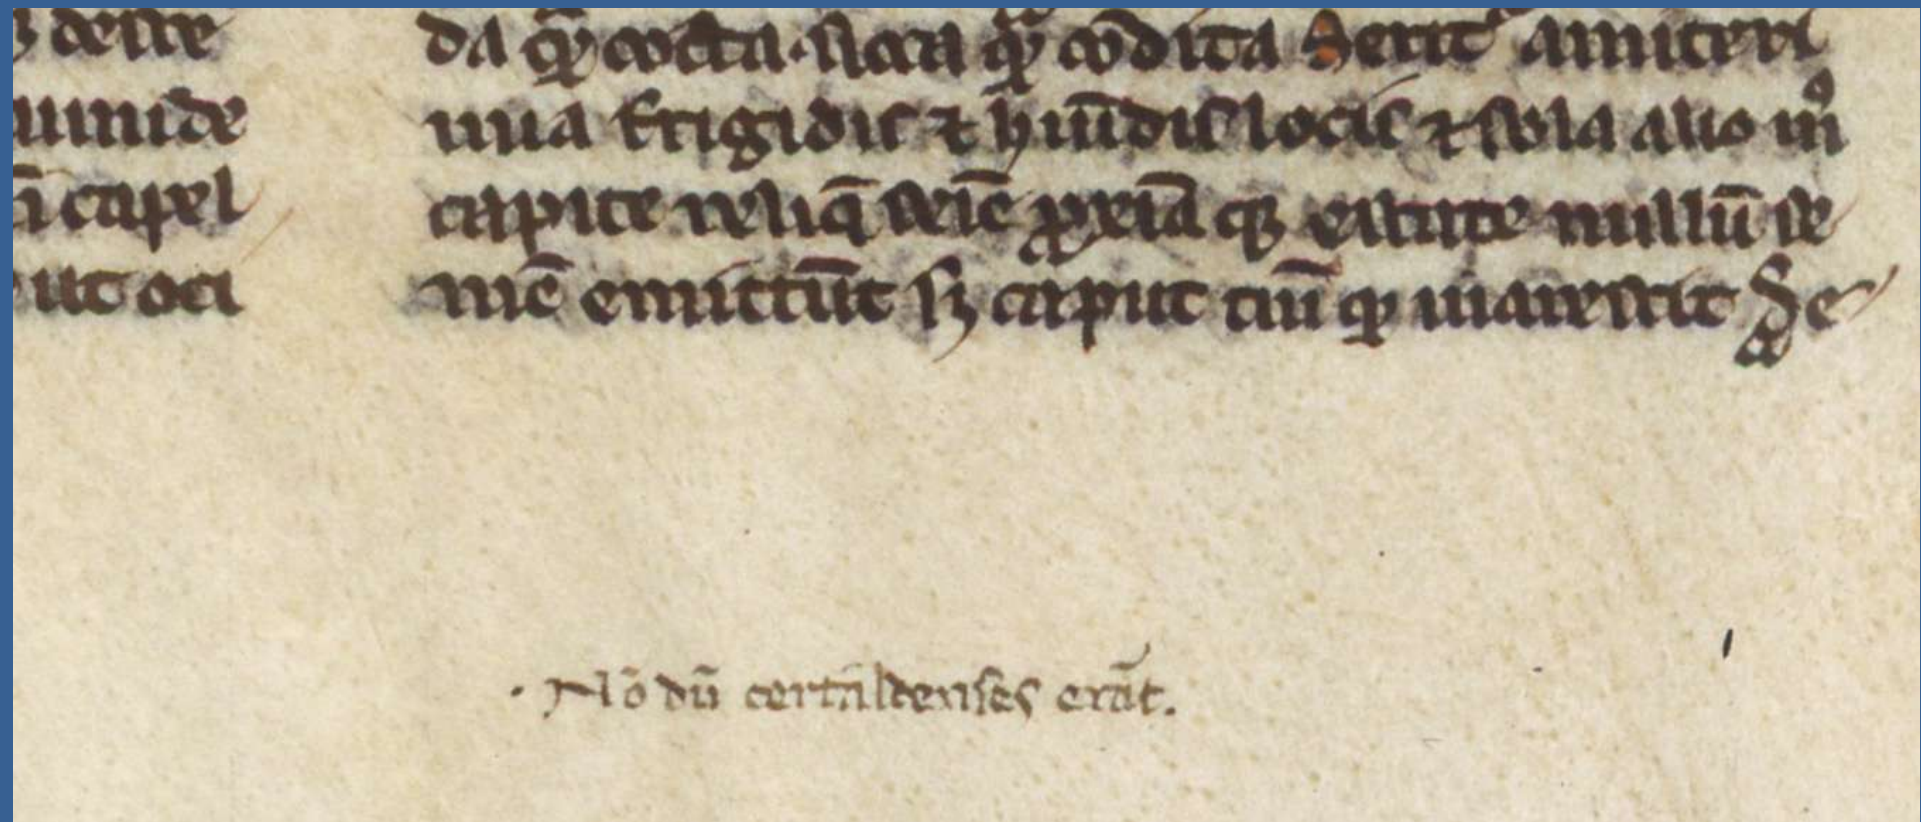 deste
umide
cũ capel
ut oci
da q̃ꝫ cocta. sicca q̃ꝫ cõdita Serit᷑ amiterni
nua frigidis ⁊ hũidis locis ⁊ sola alio mº
capite reliq̃ seĩe ꝓxĩa qꝫ estate nullũ se
mẽ emittũt sꝫ caput tm̃ qꝫ inarescit Se
· Nõ dũ certaldenses erãt.